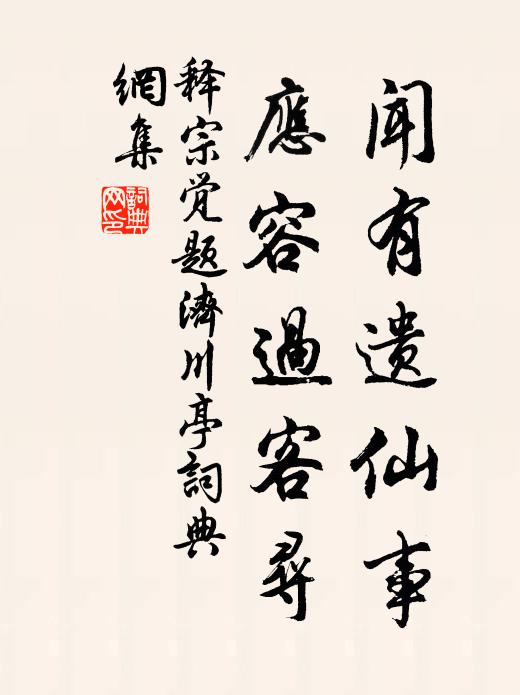 闻有遗仙事
應容過客尋
释宗觉题濟川亭詞典
網集
詞典
网印